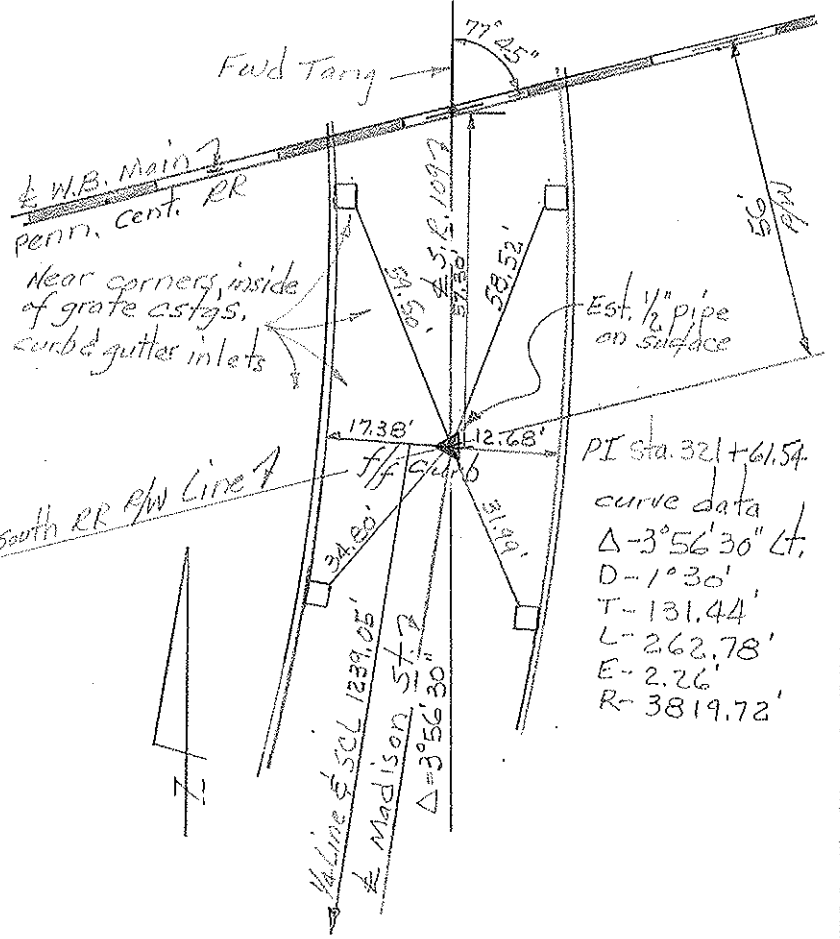 77°45"
Fwd Tang
℄ W.B. Main
Penn. Cent. RR
Near corners, inside
of grate cstgs.
curb & gutter inlets
℄ S.R. 109
57.30'
58.52'
56'
R/W
Est. 1/2" pipe
on surface
17.38'
12.68'
f/f curb
South RR R/W Line
34.80'
31.99'
PI Sta. 321+61.54
curve data
Δ-3°56'30" Lt.
D-1°30'
T-131.44'
L-262.78'
E-2.26'
R-3819.72'
1/4 Line & SCL 1239.05'
℄ Madison St.
Δ=3°56'30"
Z